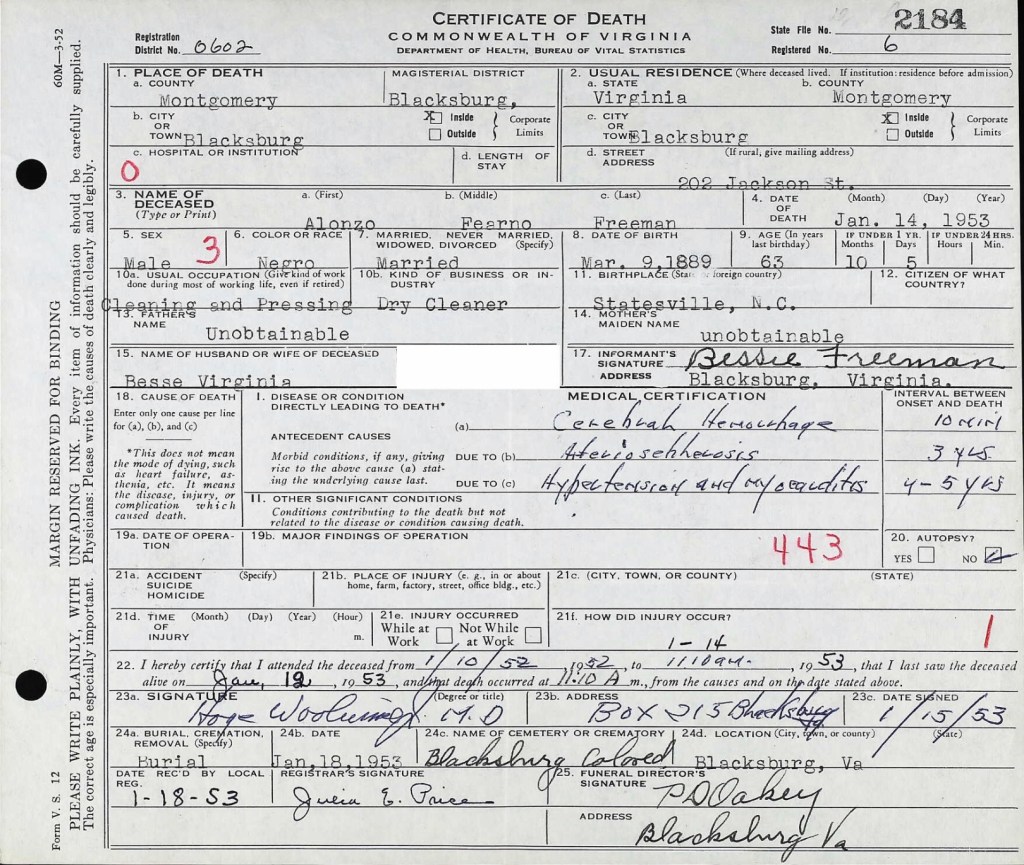 CERTIFICATE OF DEATH
COMMONWEALTH OF VIRGINIA
DEPARTMENT OF HEALTH, BUREAU OF VITAL STATISTICS
Registration District No. 0602
State File No. 2184
Registered No. 6
60M—3-52
Form V. S. 12
MARGIN RESERVED FOR BINDING
PLEASE WRITE PLAINLY, WITH UNFADING INK. Every item of information should be carefully supplied.
The correct age is especially important. Physicians: Please write the causes of death clearly and legibly.
1. PLACE OF DEATH
a. COUNTY
Montgomery
MAGISTERIAL DISTRICT
Blacksburg,
2. USUAL RESIDENCE (Where deceased lived. If institution: residence before admission)
a. STATE
Virginia
b. COUNTY
Montgomery
b. CITY OR TOWN Blacksburg
X Inside
Outside
Corporate Limits
c. CITY OR TOWN Blacksburg
X Inside
Outside
Corporate Limits
c. HOSPITAL OR INSTITUTION
0
d. LENGTH OF STAY
d. STREET ADDRESS
(If rural, give mailing address)
202 Jackson St.
3. NAME OF DECEASED
(Type or Print)
a. (First)
Alonzo
b. (Middle)
Fearno
c. (Last)
Freeman
4. DATE OF DEATH
(Month) (Day) (Year)
Jan. 14, 1953
5. SEX
Male
3
6. COLOR OR RACE
Negro
7. MARRIED, NEVER MARRIED, WIDOWED, DIVORCED (Specify)
Married
8. DATE OF BIRTH
Mar. 9,1889
9. AGE (In years last birthday)
63
IF UNDER 1 YR.
Months Days
10 5
IF UNDER 24 HRS.
Hours Min.
10a. USUAL OCCUPATION (Give kind of work done during most of working life, even if retired)
Cleaning and Pressing
10b. KIND OF BUSINESS OR INDUSTRY
Dry Cleaner
11. BIRTHPLACE (State or foreign country)
Statesville, N.C.
12. CITIZEN OF WHAT COUNTRY?
13. FATHER'S NAME
Unobtainable
14. MOTHER'S MAIDEN NAME
unobtainable
15. NAME OF HUSBAND OR WIFE OF DECEASED
Besse Virginia
17. INFORMANT'S SIGNATURE Bessie Freeman
ADDRESS Blacksburg, Virginia.
18. CAUSE OF DEATH
Enter only one cause per line for (a), (b), and (c)
*This does not mean the mode of dying, such as heart failure, asthenia, etc. It means the disease, injury, or complication which caused death.
MEDICAL CERTIFICATION
INTERVAL BETWEEN ONSET AND DEATH
I. DISEASE OR CONDITION DIRECTLY LEADING TO DEATH*
(a) Cerebrah Hemorrhage
10 min
ANTECEDENT CAUSES
Morbid conditions, if any, giving rise to the above cause (a) stating the underlying cause last.
DUE TO (b) Ateriosehherosis
3 yrs.
DUE TO (c) Hypertension and myocarditis
4-5 yrs
II. OTHER SIGNIFICANT CONDITIONS
Conditions contributing to the death but not related to the disease or condition causing death.
19a. DATE OF OPERATION
19b. MAJOR FINDINGS OF OPERATION
443
20. AUTOPSY?
YES
NO
21a. ACCIDENT SUICIDE HOMICIDE
(Specify)
21b. PLACE OF INJURY (e. g., in or about home, farm, factory, street, office bldg., etc.)
21c. (CITY, TOWN, OR COUNTY)
(STATE)
21d. TIME OF INJURY
(Month) (Day) (Year) (Hour)
m.
21e. INJURY OCCURRED
While at Work
Not While at Work
21f. HOW DID INJURY OCCUR?
1
1-14
22. I hereby certify that I attended the deceased from 1/10/52, 1952, to 11:10 am., 1953, that I last saw the deceased
alive on Jan, 12, 1953, and that death occurred at 11:10 A m., from the causes and on the date stated above.
23a. SIGNATURE
(Degree or title)
M.D
23b. ADDRESS
Box 215 Blacksburg
23c. DATE SIGNED
1/15/53
24a. BURIAL, CREMATION, REMOVAL (Specify)
Burial
24b. DATE
Jan,18,1953
24c. NAME OF CEMETERY OR CREMATORY
Blacksburg Colored
24d. LOCATION (City, town, or county) (State)
Blacksburg, Va
DATE REC'D BY LOCAL REG.
1-18-53
REGISTRAR'S SIGNATURE
Julia E. Price
25. FUNERAL DIRECTOR'S SIGNATURE
P D Oakey
ADDRESS
Blacksburg Va